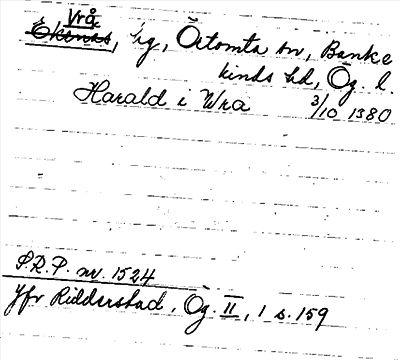 Vrå
Ekenäs, lg, Örtomta sn, Banke
kinds hd, Ög. l.
Harald i Wra 3/10 1380
S.R.P. nr. 1524
Jfr Ridderstad, Ög. II, 1 s. 159